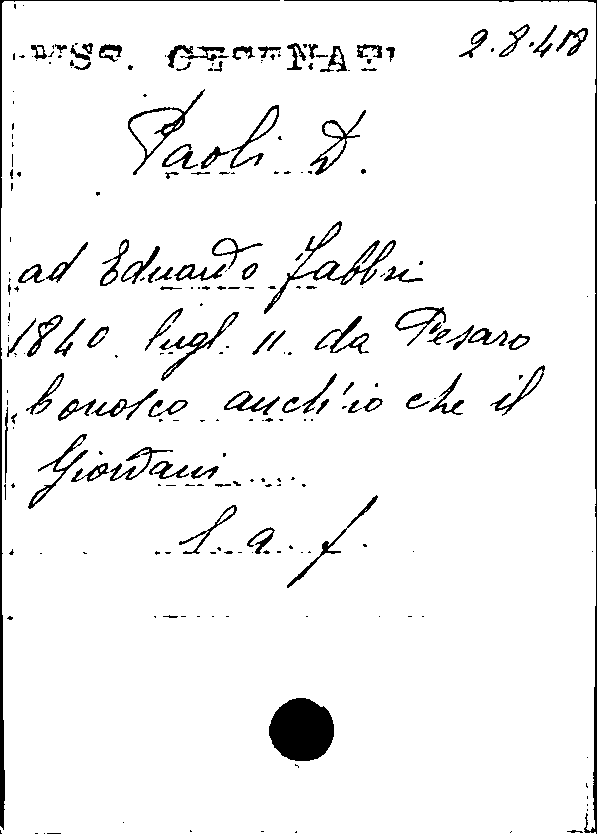 MSS. CESENATI 2.8.418
Paoli D.
ad Eduardo Fabbri
1840 lugl. 11. da Pesaro
Conosco anch'io che il
Giordani.....
l. a. f.